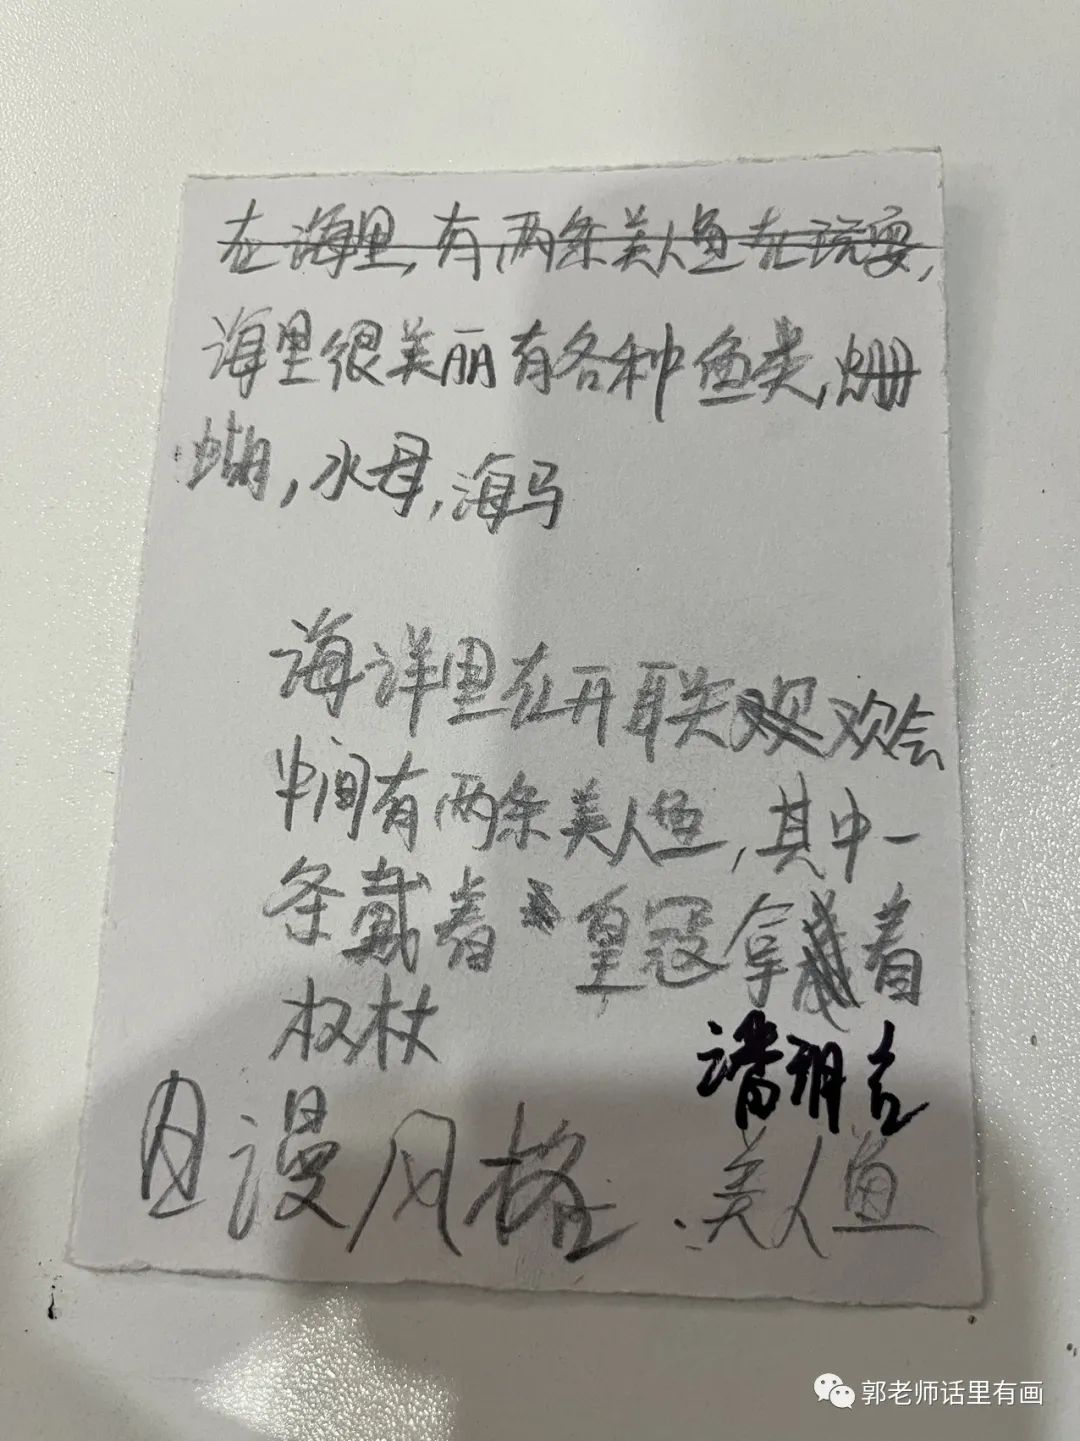 在海里,有两条美人鱼在玩耍,
海里很美丽有各种鱼类,珊
瑚,水母,海马
海洋里在开联欢会
中间有两条美人鱼,其中一
条戴着皇冠拿着
权杖
潘玥言
日漫风格 美人鱼
郭老师话里有画